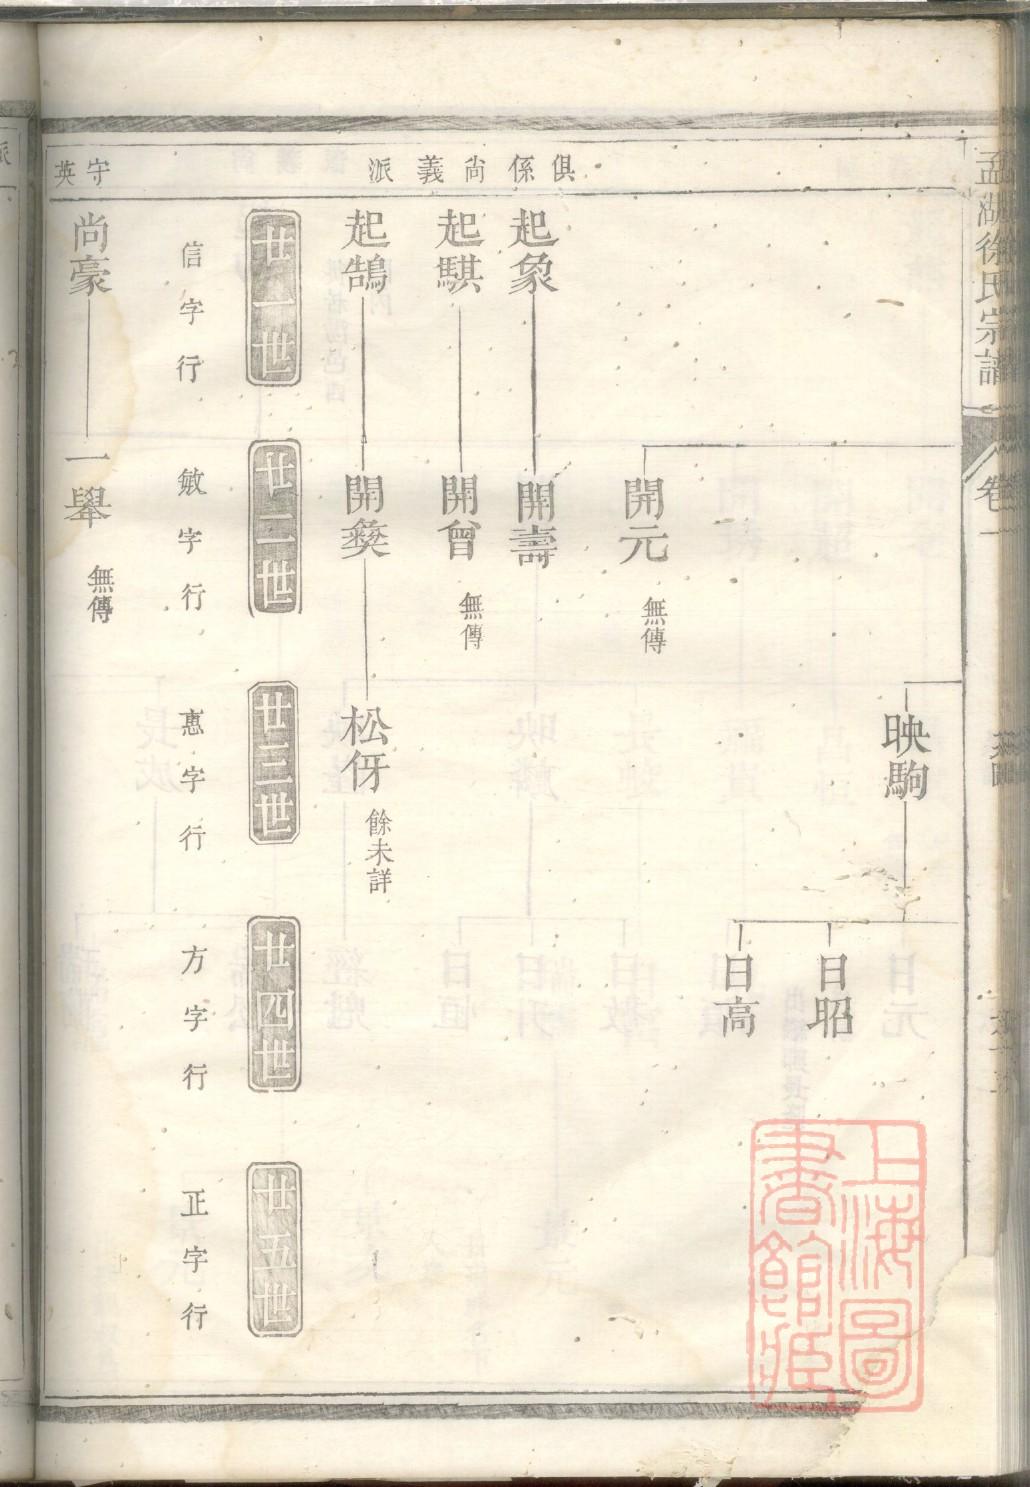 孟湖徐氏宗譜
卷一
俱係尚義派
映駒
日昭
日高
開元
無傳
起象
開壽
起騏
開曾
無傳
起鵠
開彜
松伢
餘未詳
廿一世
廿二世
廿三世
廿四世
廿五世
信字行
敏字行
惠字行
方字行
正字行
守英
尚豪
一舉
無傳
上海圖書館藏